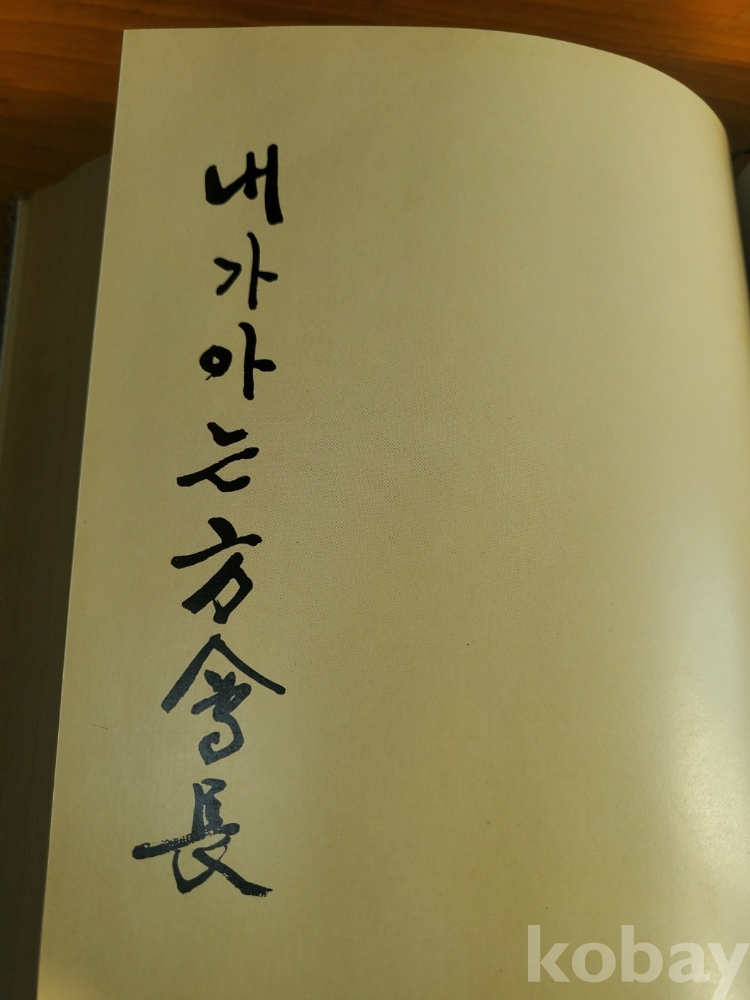 내가 아는 方會長
kobay